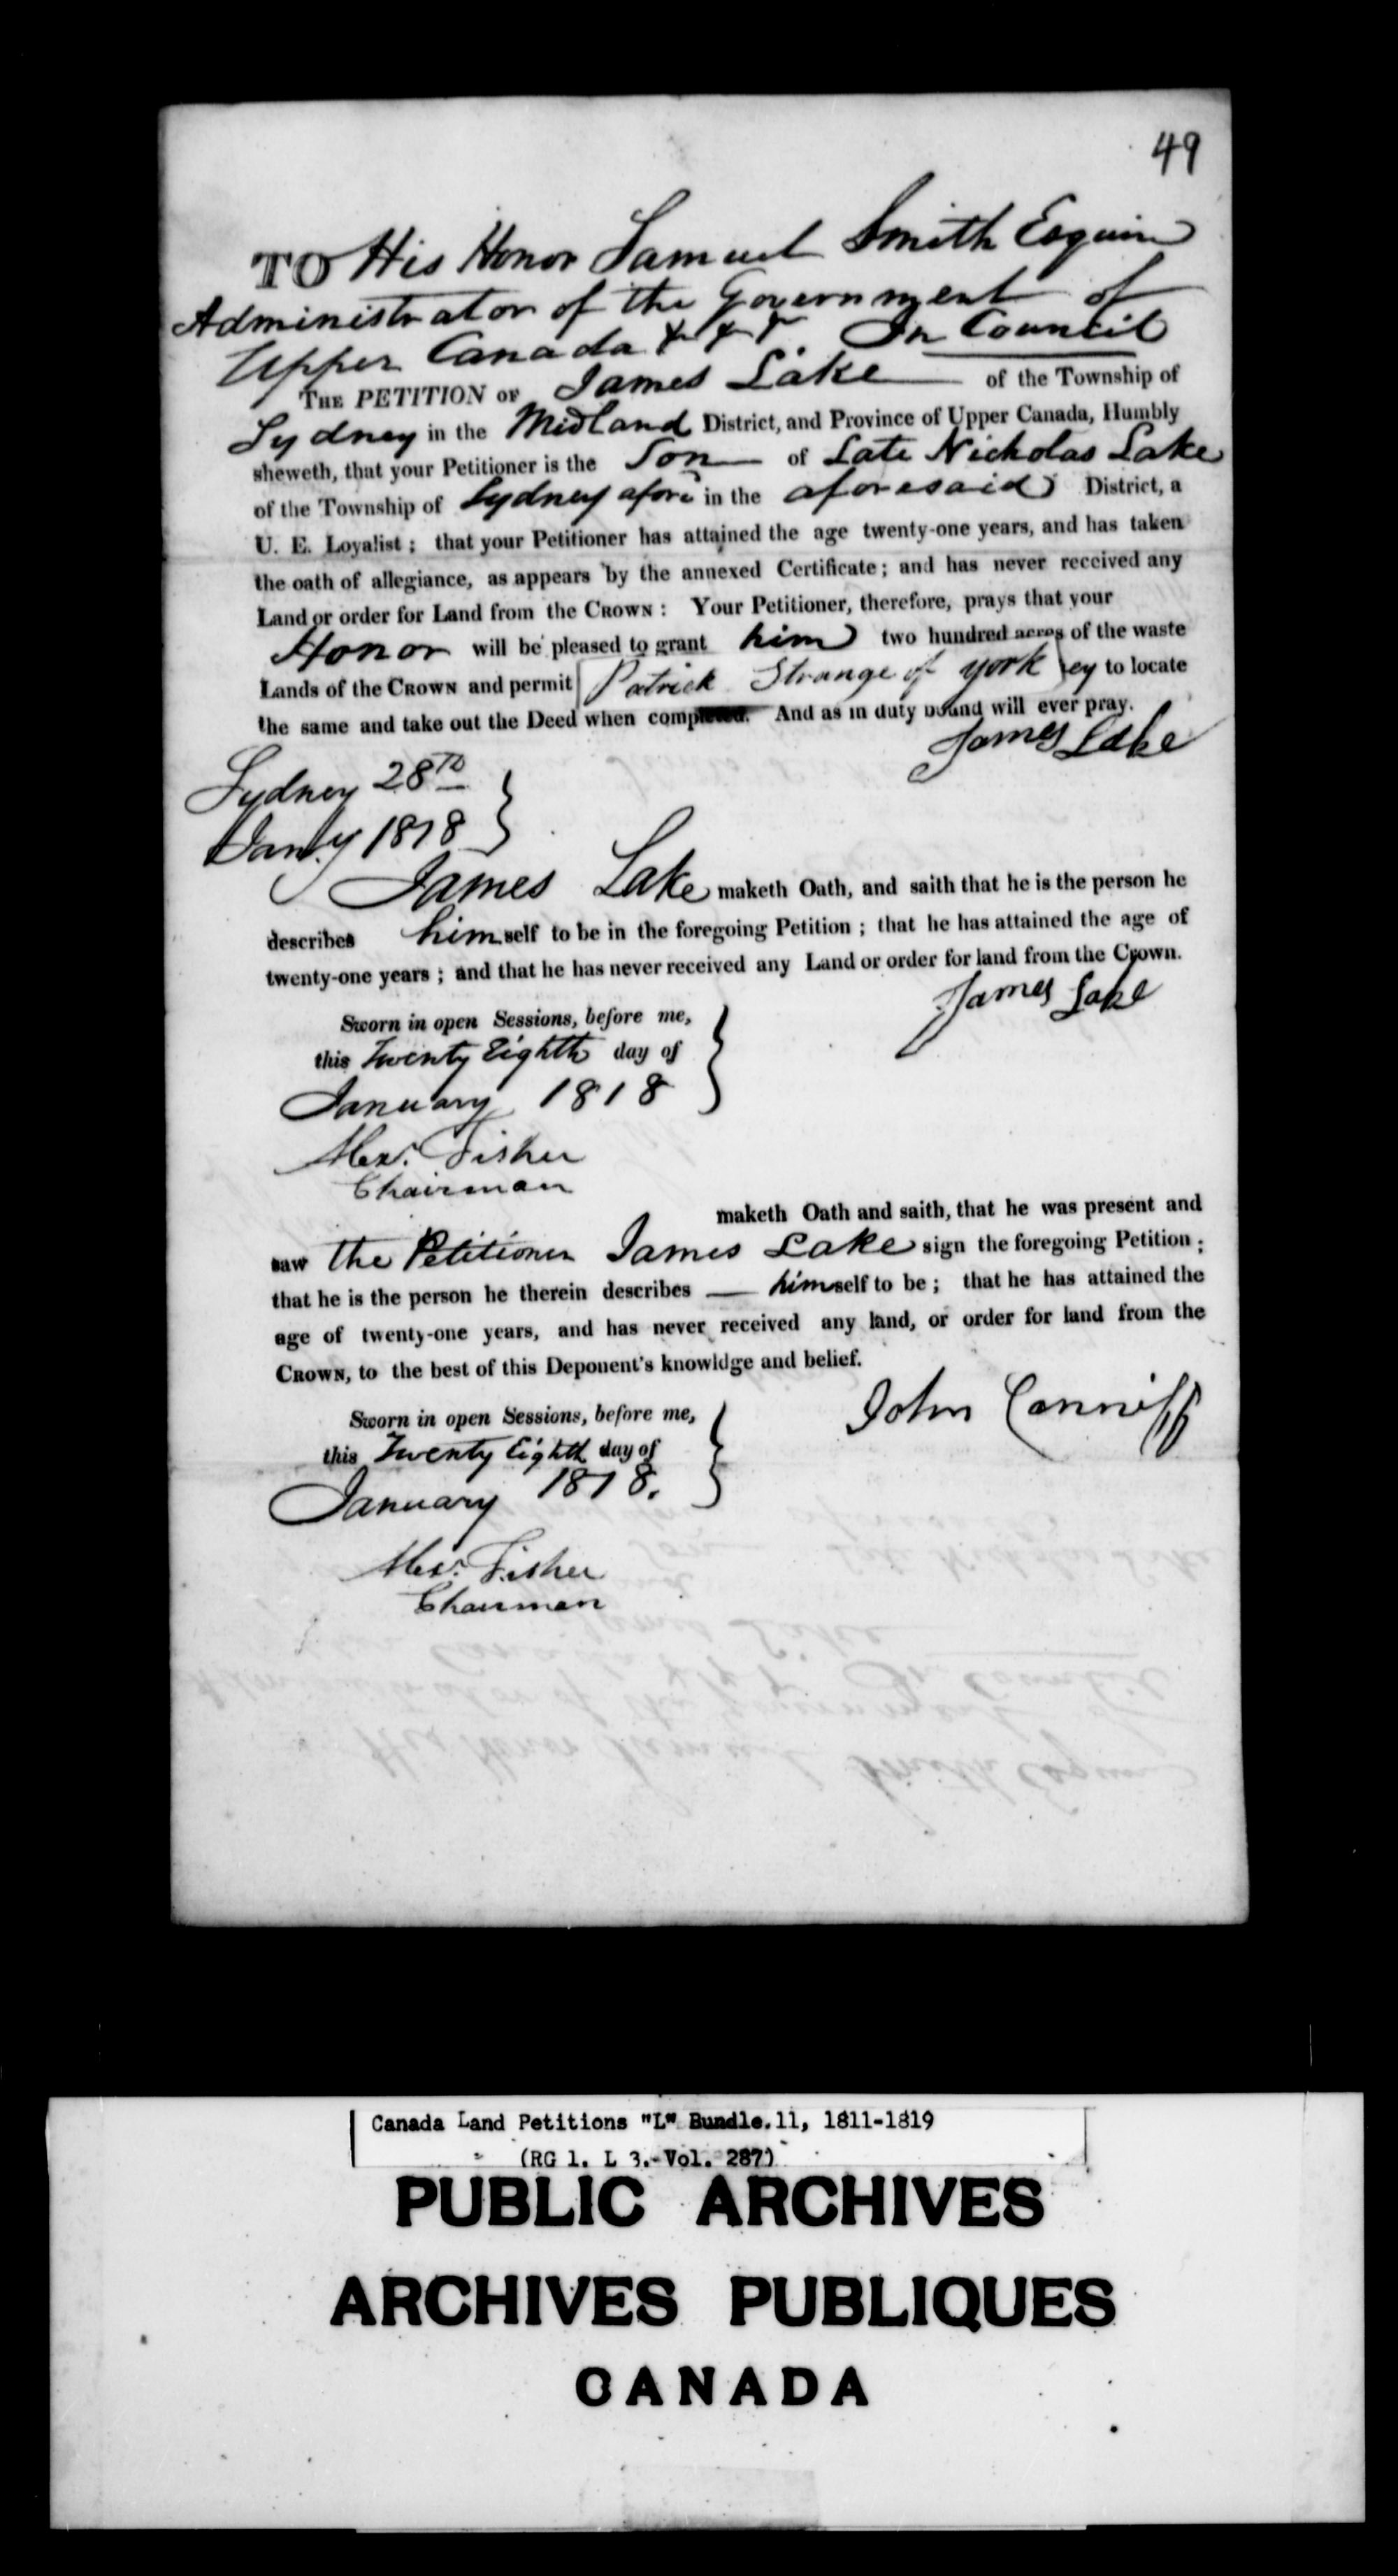 49
TO His Honor Samuel Smith Esquire
Administrator of the Government of
Upper Canada & & & In Council
THE PETITION OF James Lake of the Township of
Sydney in the Midland District, and Province of Upper Canada, Humbly
sheweth, that your Petitioner is the Son of Late Nicholas Lake
of the Township of Sydney afore in the aforesaid District, a
U. E. Loyalist; that your Petitioner has attained the age twenty-one years, and has taken
the oath of allegiance, as appears by the annexed Certificate; and has never received any
Land or order for Land from the CROWN: Your Petitioner, therefore, prays that your
Honor will be pleased to grant him two hundred acres of the waste
Lands of the CROWN and permit Patrick Strange of york ey to locate
the same and take out the Deed when completed. And as in duty bound will ever pray.
James Lake
Sydney 28th
Jany 1818
James Lake maketh Oath, and saith that he is the person he
describes himself to be in the foregoing Petition; that he has attained the age of
twenty-one years; and that he has never received any Land or order for land from the Crown.
James Lake
Sworn in open Sessions, before me,
this Twenty Eighth day of
January 1818
Alexr. Fisher
Chairman
maketh Oath and saith, that he was present and
saw the Petitioner James Lake sign the foregoing Petition;
that he is the person he therein describes — himself to be; that he has attained the
age of twenty-one years, and has never received any land, or order for land from the
CROWN, to the best of this Deponent's knowldge and belief.
John Canniff
Sworn in open Sessions, before me,
this Twenty Eighth day of
January 1818.
Alexr. Fisher
Chairman
Canada Land Petitions "L" Bundle.11, 1811-1819
(RG 1, L 3,-Vol. 287)
PUBLIC ARCHIVES
ARCHIVES PUBLIQUES
CANADA